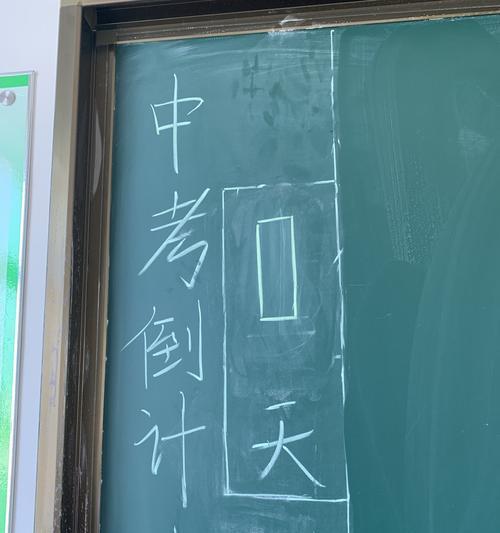 中考倒计
0
天